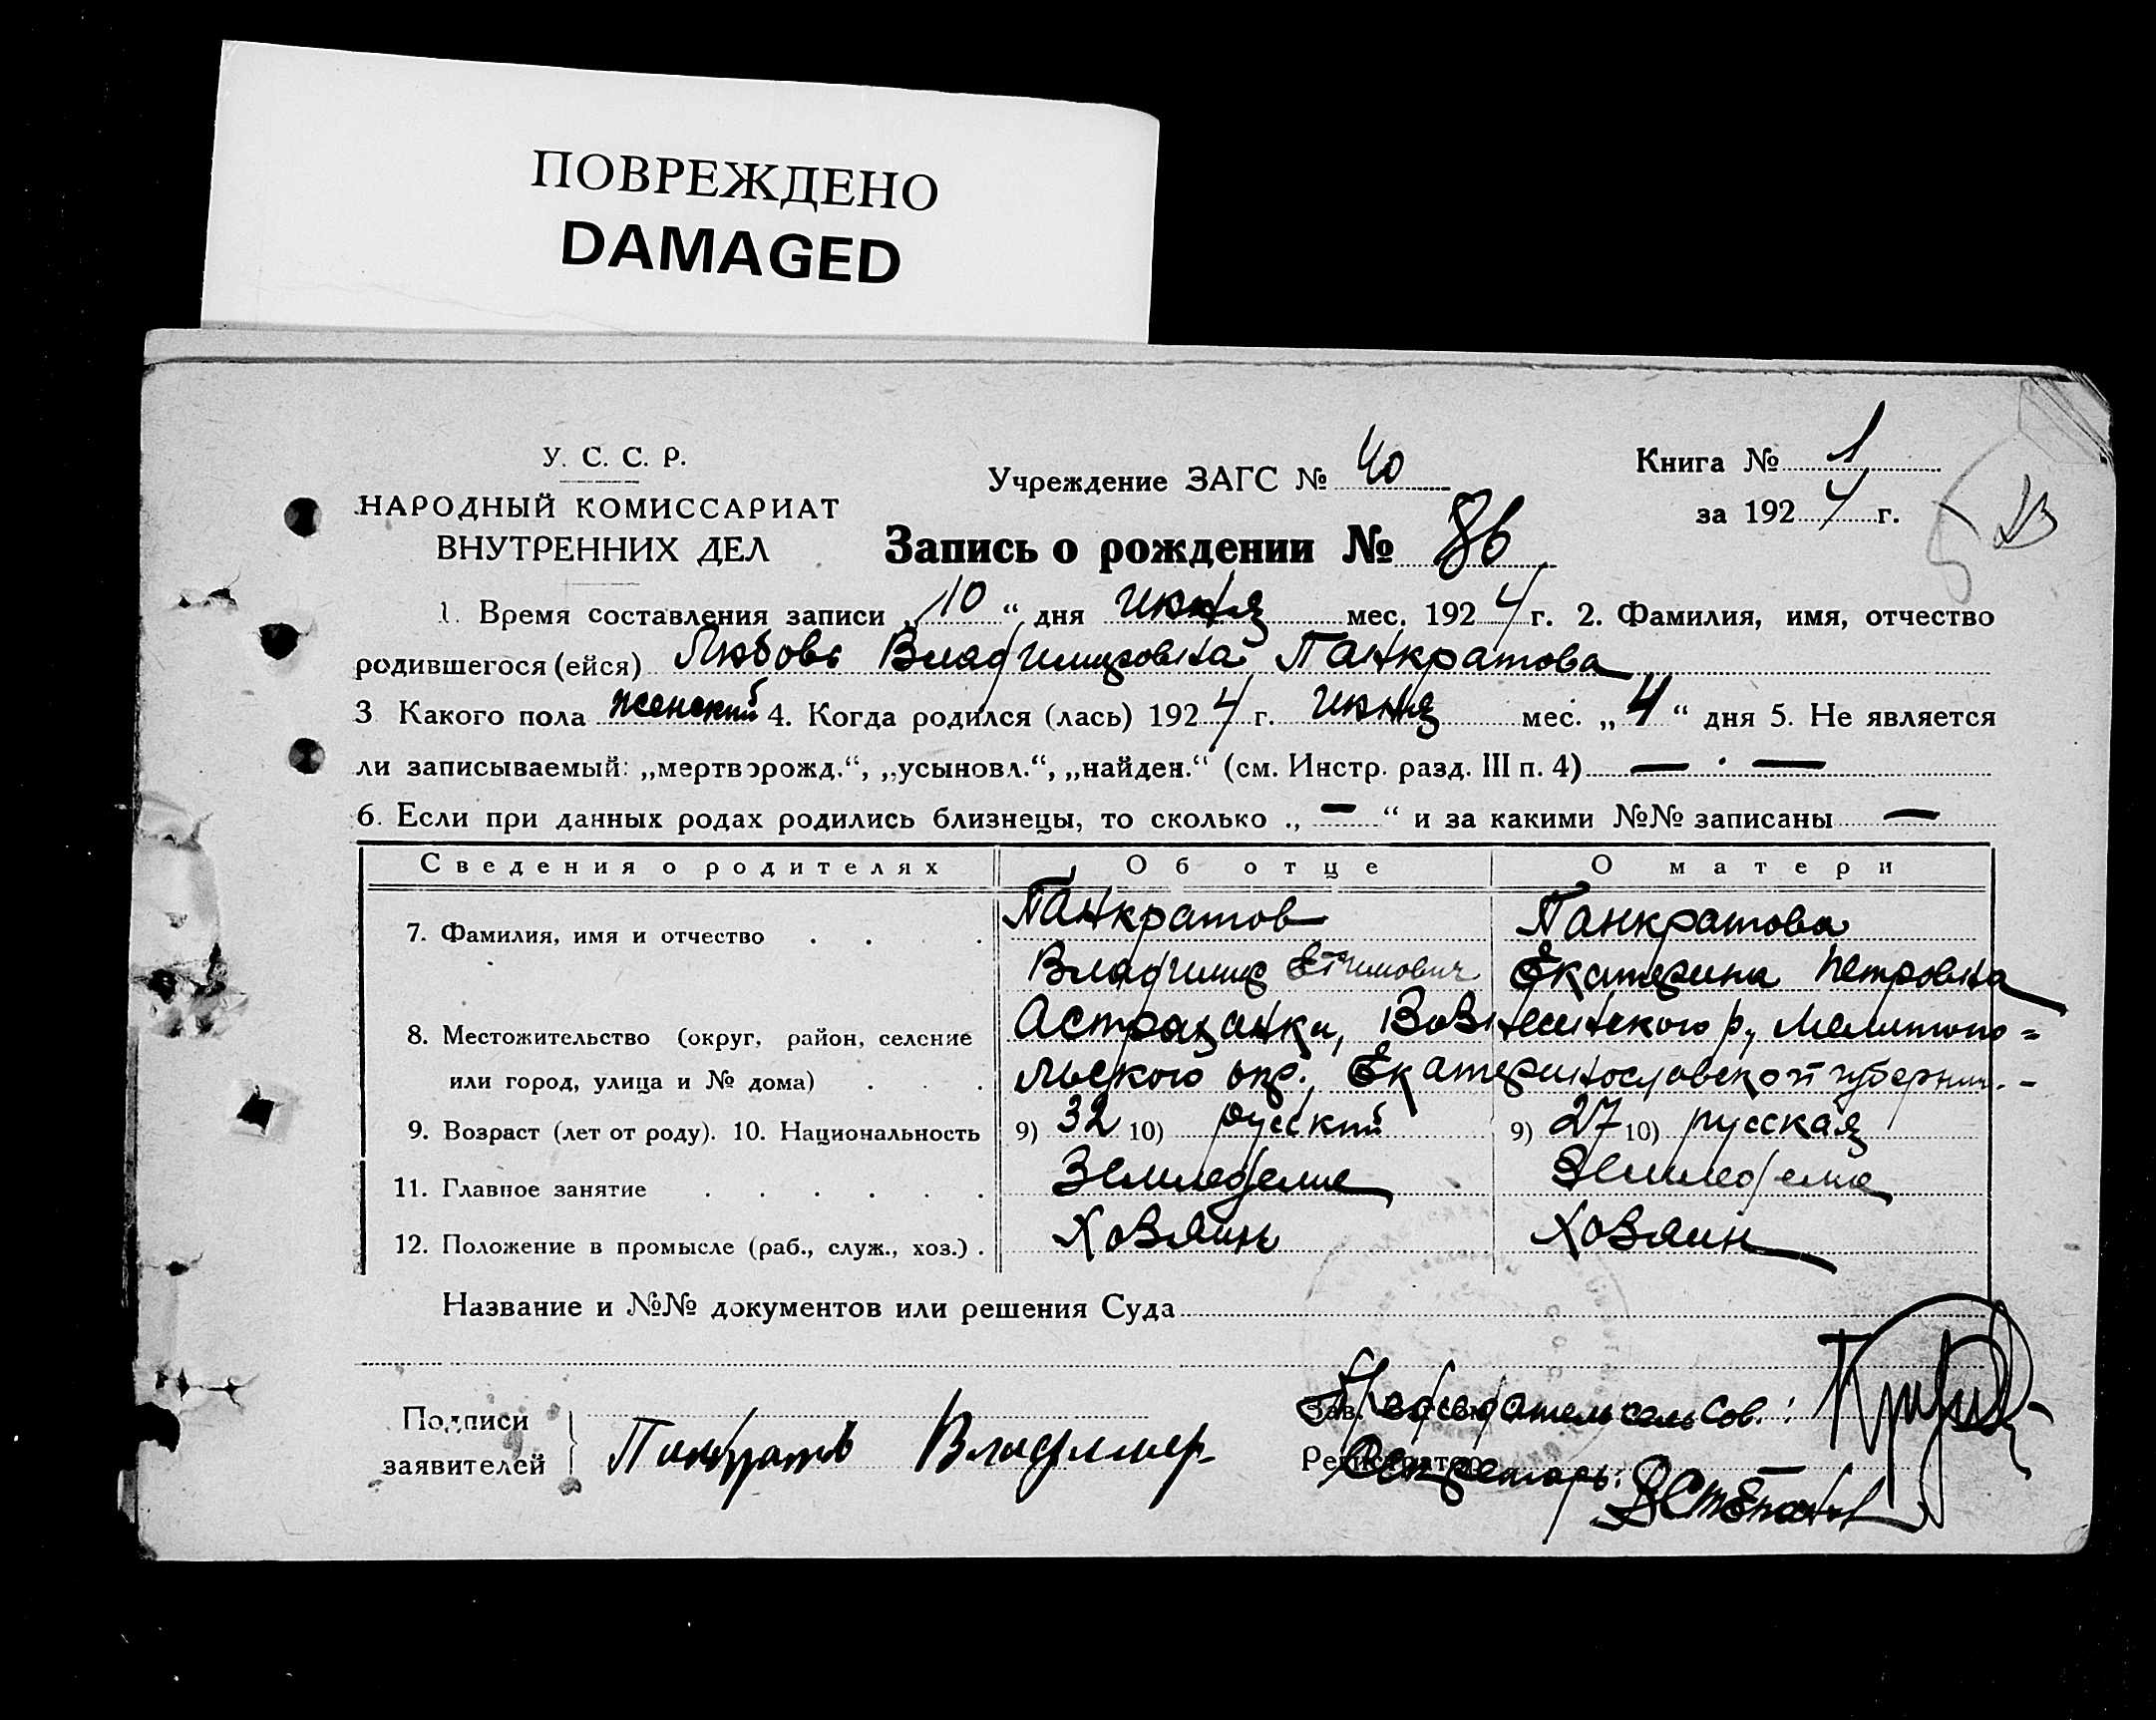 ПОВРЕЖДЕНО
DAMAGED
У. С. С. Р.
НАРОДНЫЙ КОМИССАРИАТ
ВНУТРЕННИХ ДЕЛ
Учреждение ЗАГС № 40
Книга № 1
за 1924 г.
Запись о рождении № 86
1. Время составления записи „10“ дня июня мес. 1924 г. 2. Фамилия, имя, отчество
родившегося (ейся) Любовь Владимировна Панкратова
3 Какого пола женский 4. Когда родился (лась) 1924 г. июня мес. „4“ дня 5. Не является
ли записываемый: „мертворожд.“, „усыновл.“, „найден.“ (см. Инстр. разд. III п. 4) — · —
6. Если при данных родах родились близнецы, то сколько „—“ и за какими №№ записаны —
Сведения о родителях Об отце О матери
7. Фамилия, имя и отчество . . . . Панкратов Панкратова
Владимир Екатерина Петровна
8. Местожительство (округ, район, селение Астраханки, Вознесенского р, Мелитопо=
или город, улица и № дома) . . . льского окр., Екатеринославской губернии. -
9. Возраст (лет от роду). 10. Национальность 9) 32 10) русский 9) 27 10) русская
11. Главное занятие . . . . . . Земледелие Земледелие
12. Положение в промысле (раб., служ., хоз.) . Хозяин Хозяин
Название и №№ документов или решения Суда
Подписи
заявителей
Панкратов Владимир
Председатель сельсов.:
Регистратор
Секретарь: